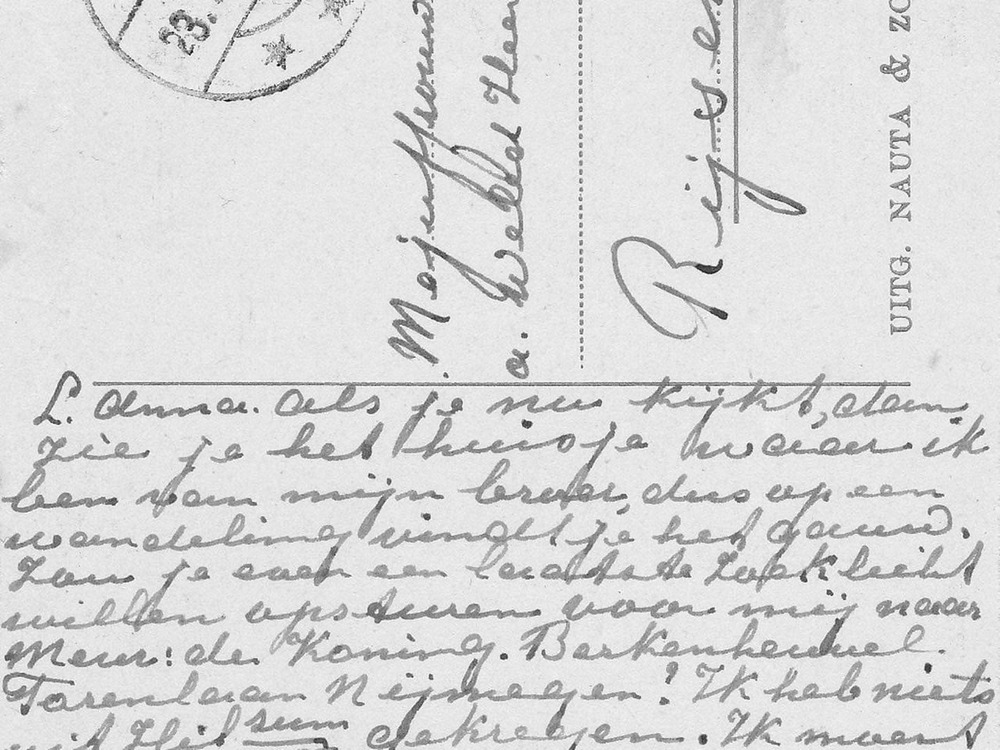 23.
Mejuffrouw
a. Weld
Rijsse
UITG. NAUTA & ZO
L. Anna. Als je nu kijkt, dan
zie je het huisje waar ik
ben van mijn broer, dus op een
wandeling vindt je het gauw.
Zou je even een laatste Zoeklicht
willen opsturen voor mij naar
Meur: de Koning. Berkenheuvel.
Torenlaan Nijmegen? Ik heb niets
uit gekregen. Ik moest